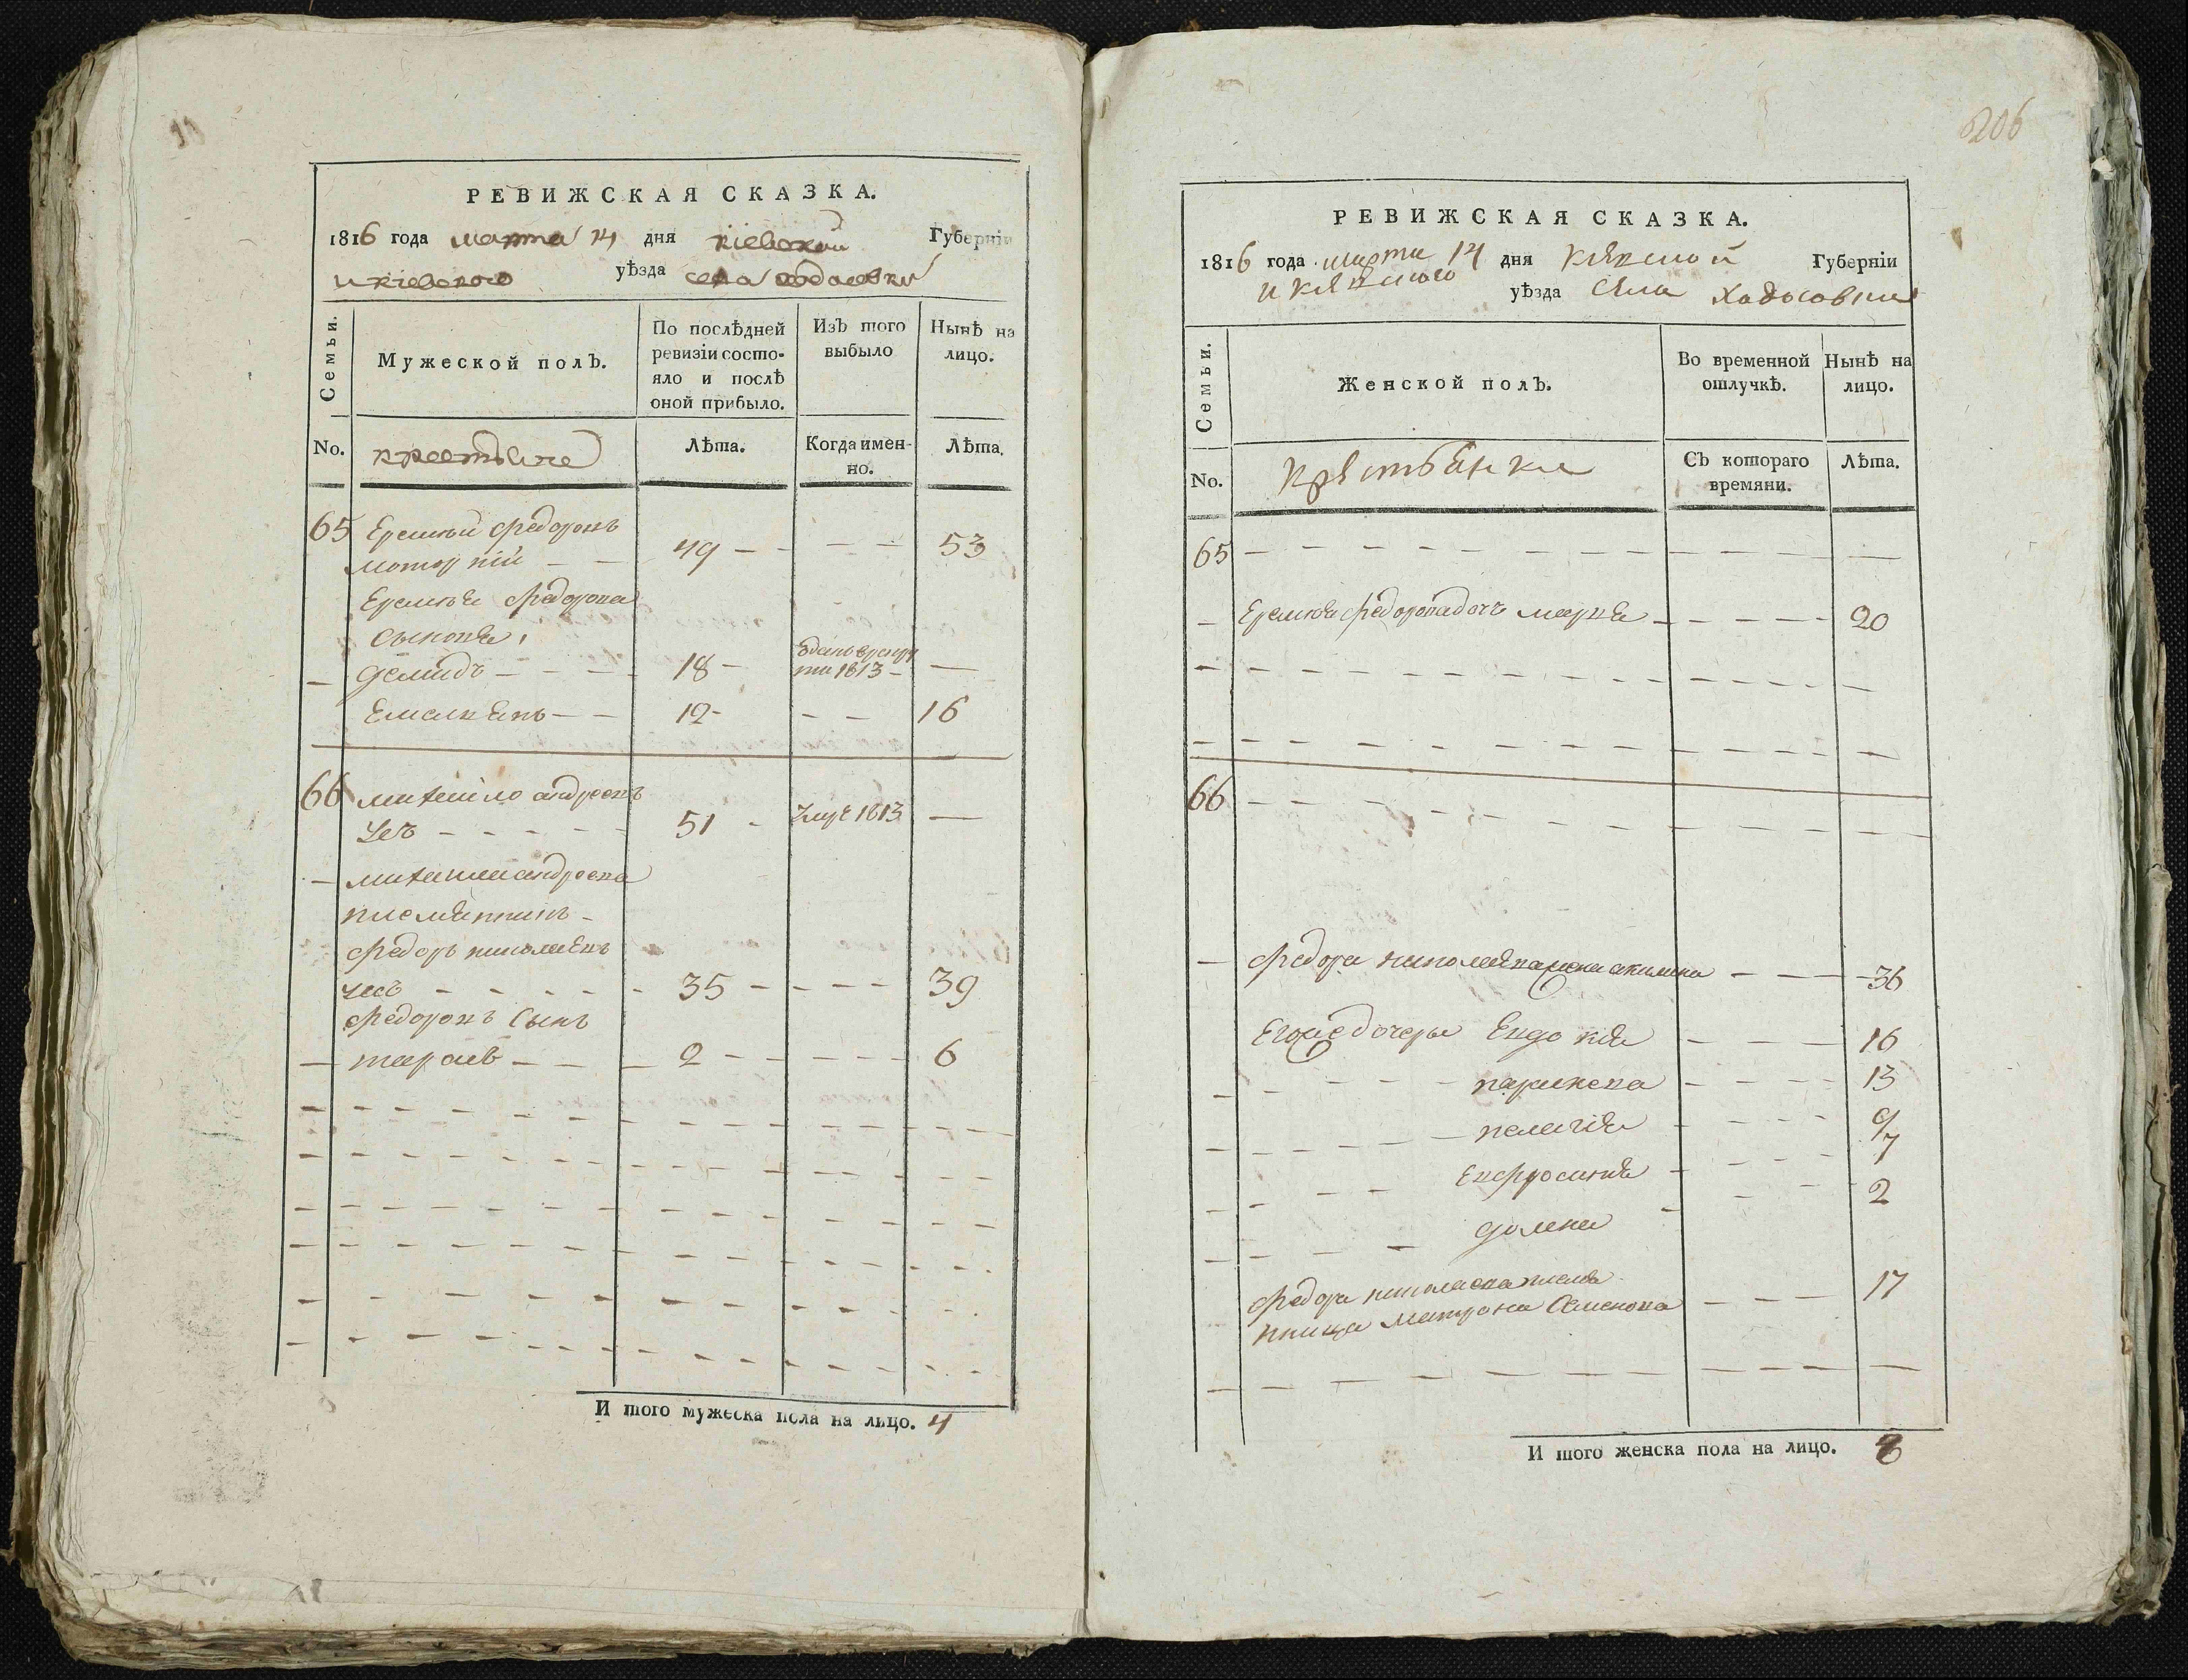 РЕВИЖСКАЯ СКАЗКА.
1816 года марта 14 дня киевской Губерніи
и киевского уѣзда села ходосовки
Семьи.
Мужеской полЪ.
По послѣдней ревизіи состояло и послѣ оной прибыло.
ИзЪ того выбыло
Нынѣ на лицо.
No.
крестьяне
Лѣта.
Когда именно.
Лѣта.
65 Еремѣй Федоровъ
49 — — — — 53
Еремѣя Федорова
сыновя,
— демидъ — — — — 18 — 1813 — —
Емелянъ — — 12 — — — 16
66 михайло андреевъ
51 — 1813 —
— михайла андреева
племянникъ —
Федоръ николаевъ
— — — — — 35 — — — — 39
Федоровъ Сынъ
— тарасъ — — — 2 — — — — — 6
И того мужеска пола на лицо. 4
206
РЕВИЖСКАЯ СКАЗКА.
1816 года марта 14 дня киевской Губерніи
и киевского уѣзда села Ходосовки
Семьи.
Женской полЪ.
Во временной отлучкѣ.
Нынѣ на лицо.
No.
крестьянки
СЪ котораго времяни.
Лѣта.
65 — — — — — — — — — — —
— Еремѣя Федорова дочь марья — — — — — 20
66 — — — — — — — — — —
— Федора николаева жена акилина — — — 36
Егоже дочери Евдокия — — — 16
параскева — — — — 13
пелагія — — — — 9
Евфросинія — — — — 7
домна — — — 2
Федора николаева племя
нница матрона Семенова — — — 17
И того женска пола на лицо. 8